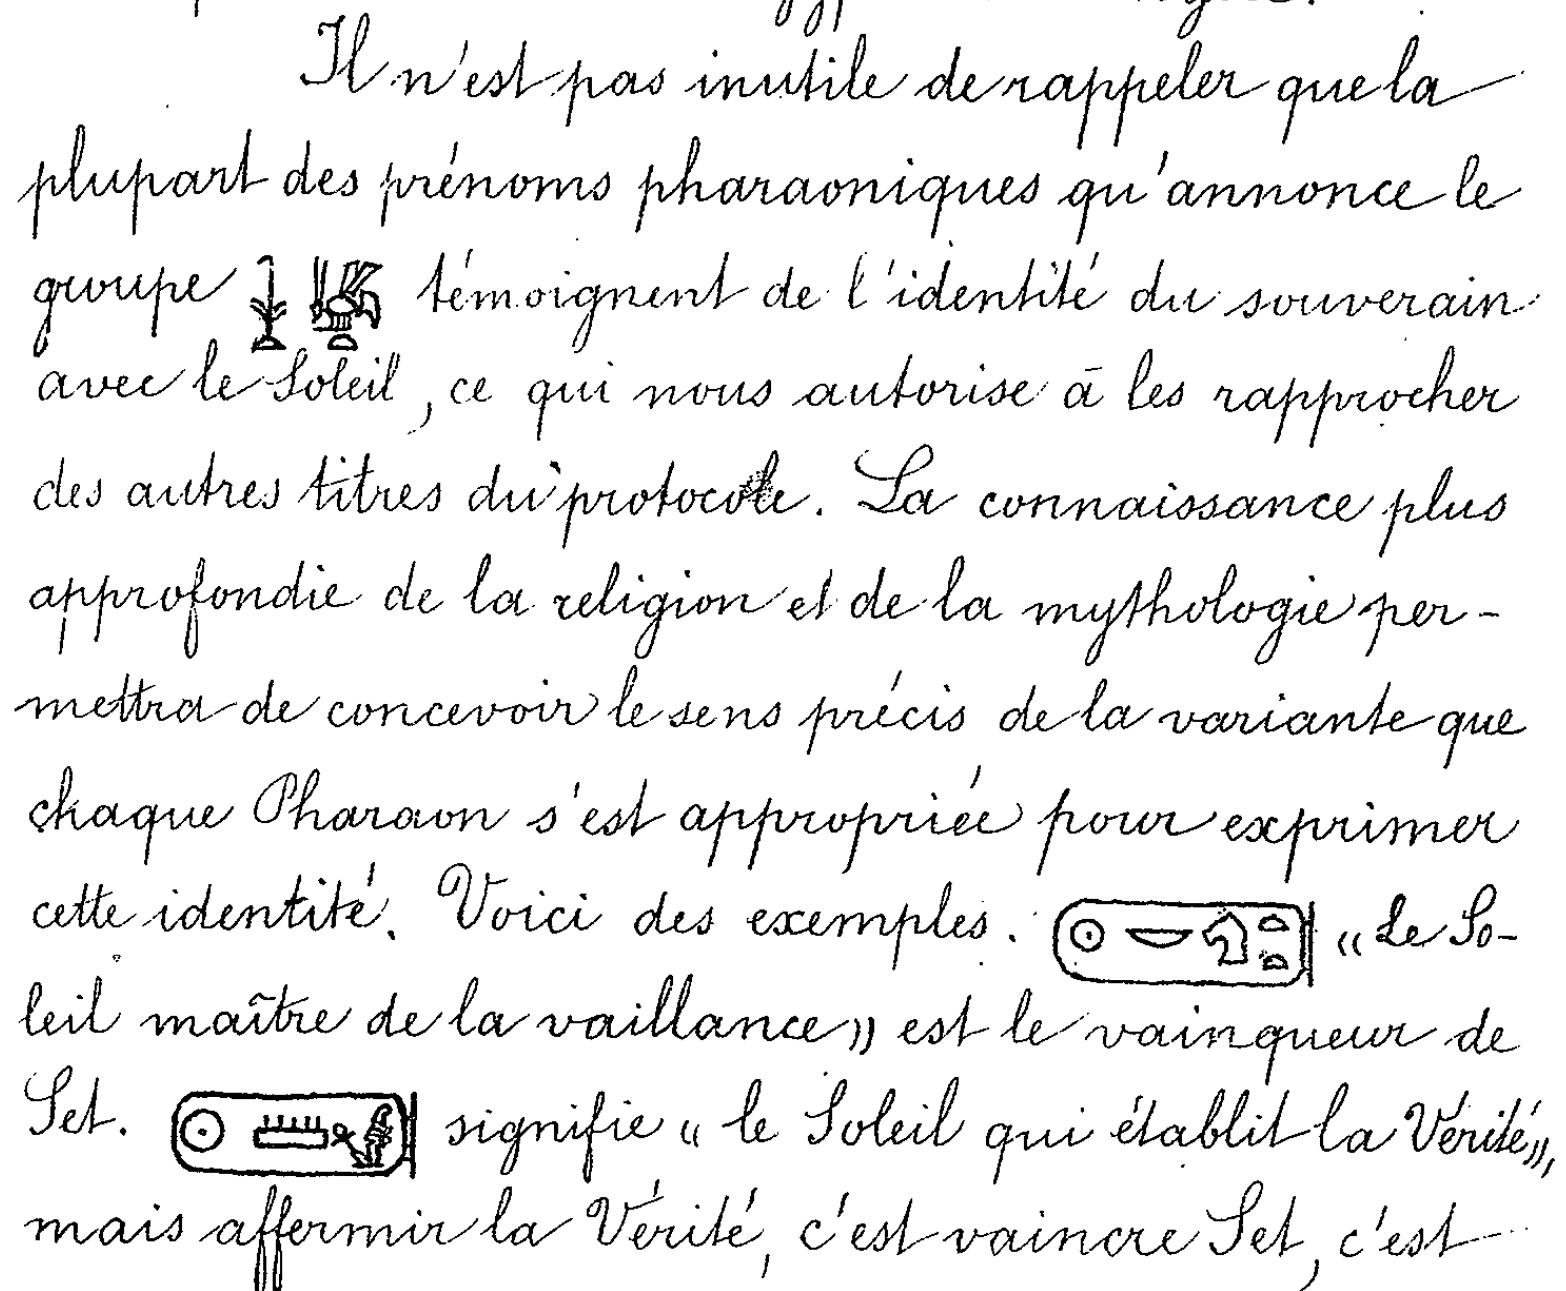 Il n'est pas inutile de rappeler que la
plupart des prénoms pharaoniques qu'annonce le
groupe 𓇓𓏏 𓆤𓏏 témoignent de l'identité du souverain
avec le Soleil, ce qui nous autorise à les rapprocher
des autres titres du protocole. La connaissance plus
approfondie de la religion et de la mythologie per-
mettra de concevoir le sens précis de la variante que
chaque Pharaon s'est appropriée pour exprimer
cette identité. Voici des exemples. 𓍹𓇳𓎟𓄇𓏏𓏏𓍺 « Le So-
leil maître de la vaillance » est le vainqueur de
Set. 𓍹𓇳𓏠𓁦𓍺 signifie « le Soleil qui établit la Vérité »,
mais affermir la Vérité, c'est vaincre Set, c'est